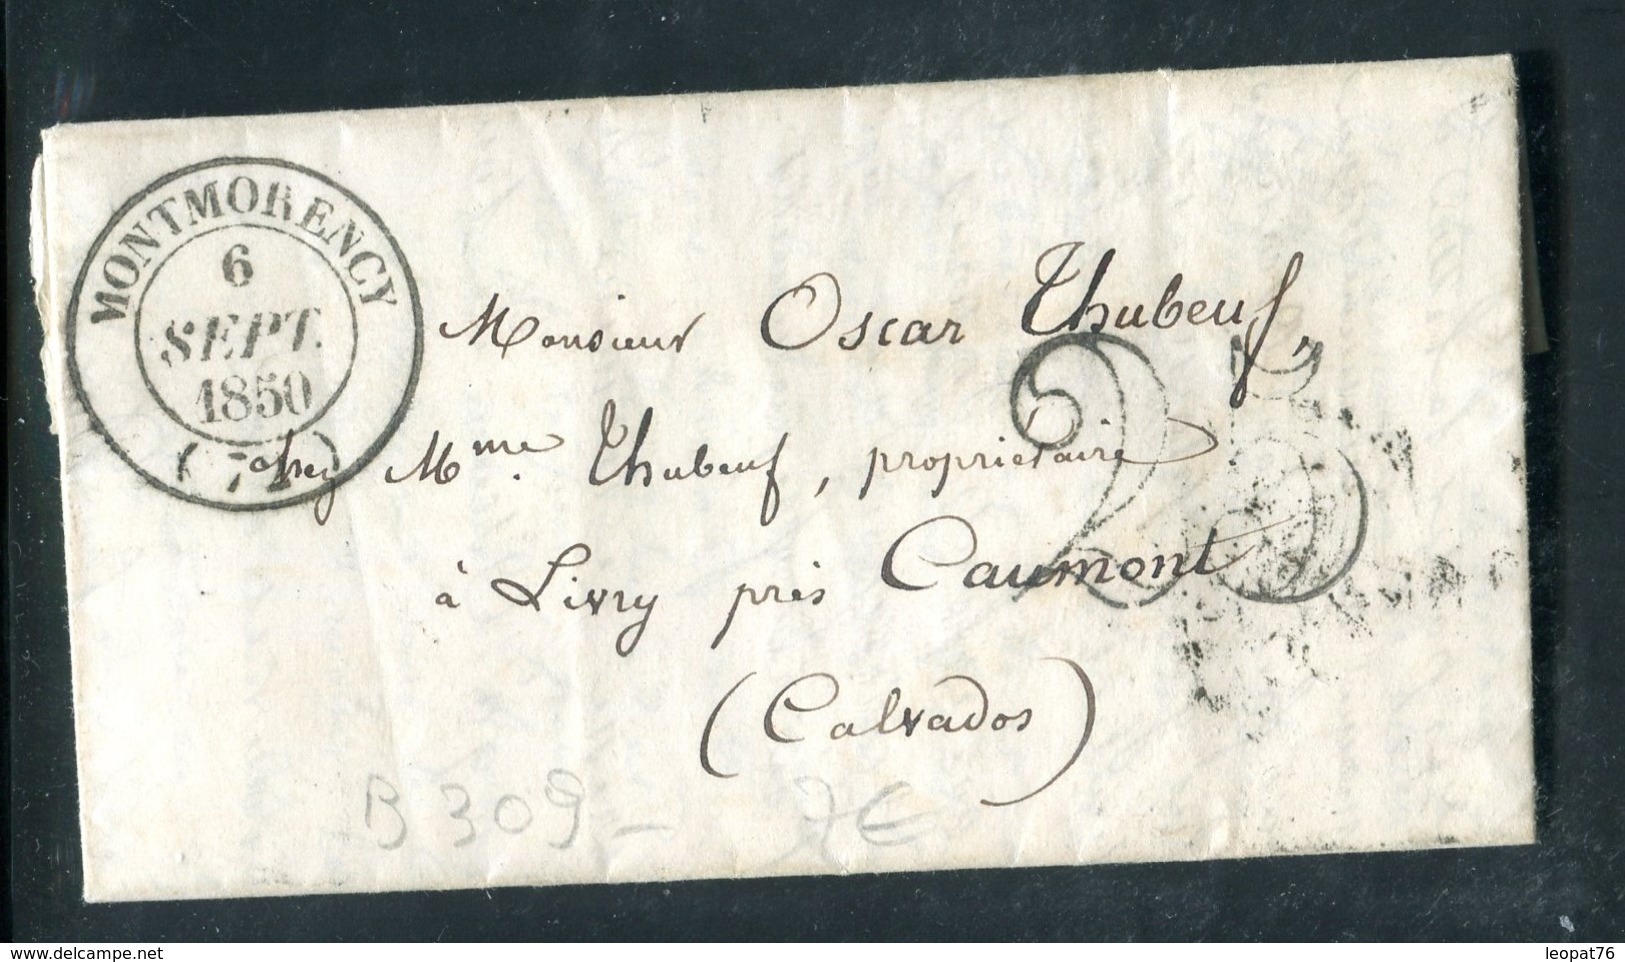 MONTMORENCY
6
SEPT.
1850
(72)
Monsieur Oscar Thubeuf,
chez Mme. Thubeuf, propriétaire
à Livry près Caumont
(Calvados)
25
B 309 - 7€
delcampe.net
leopat76